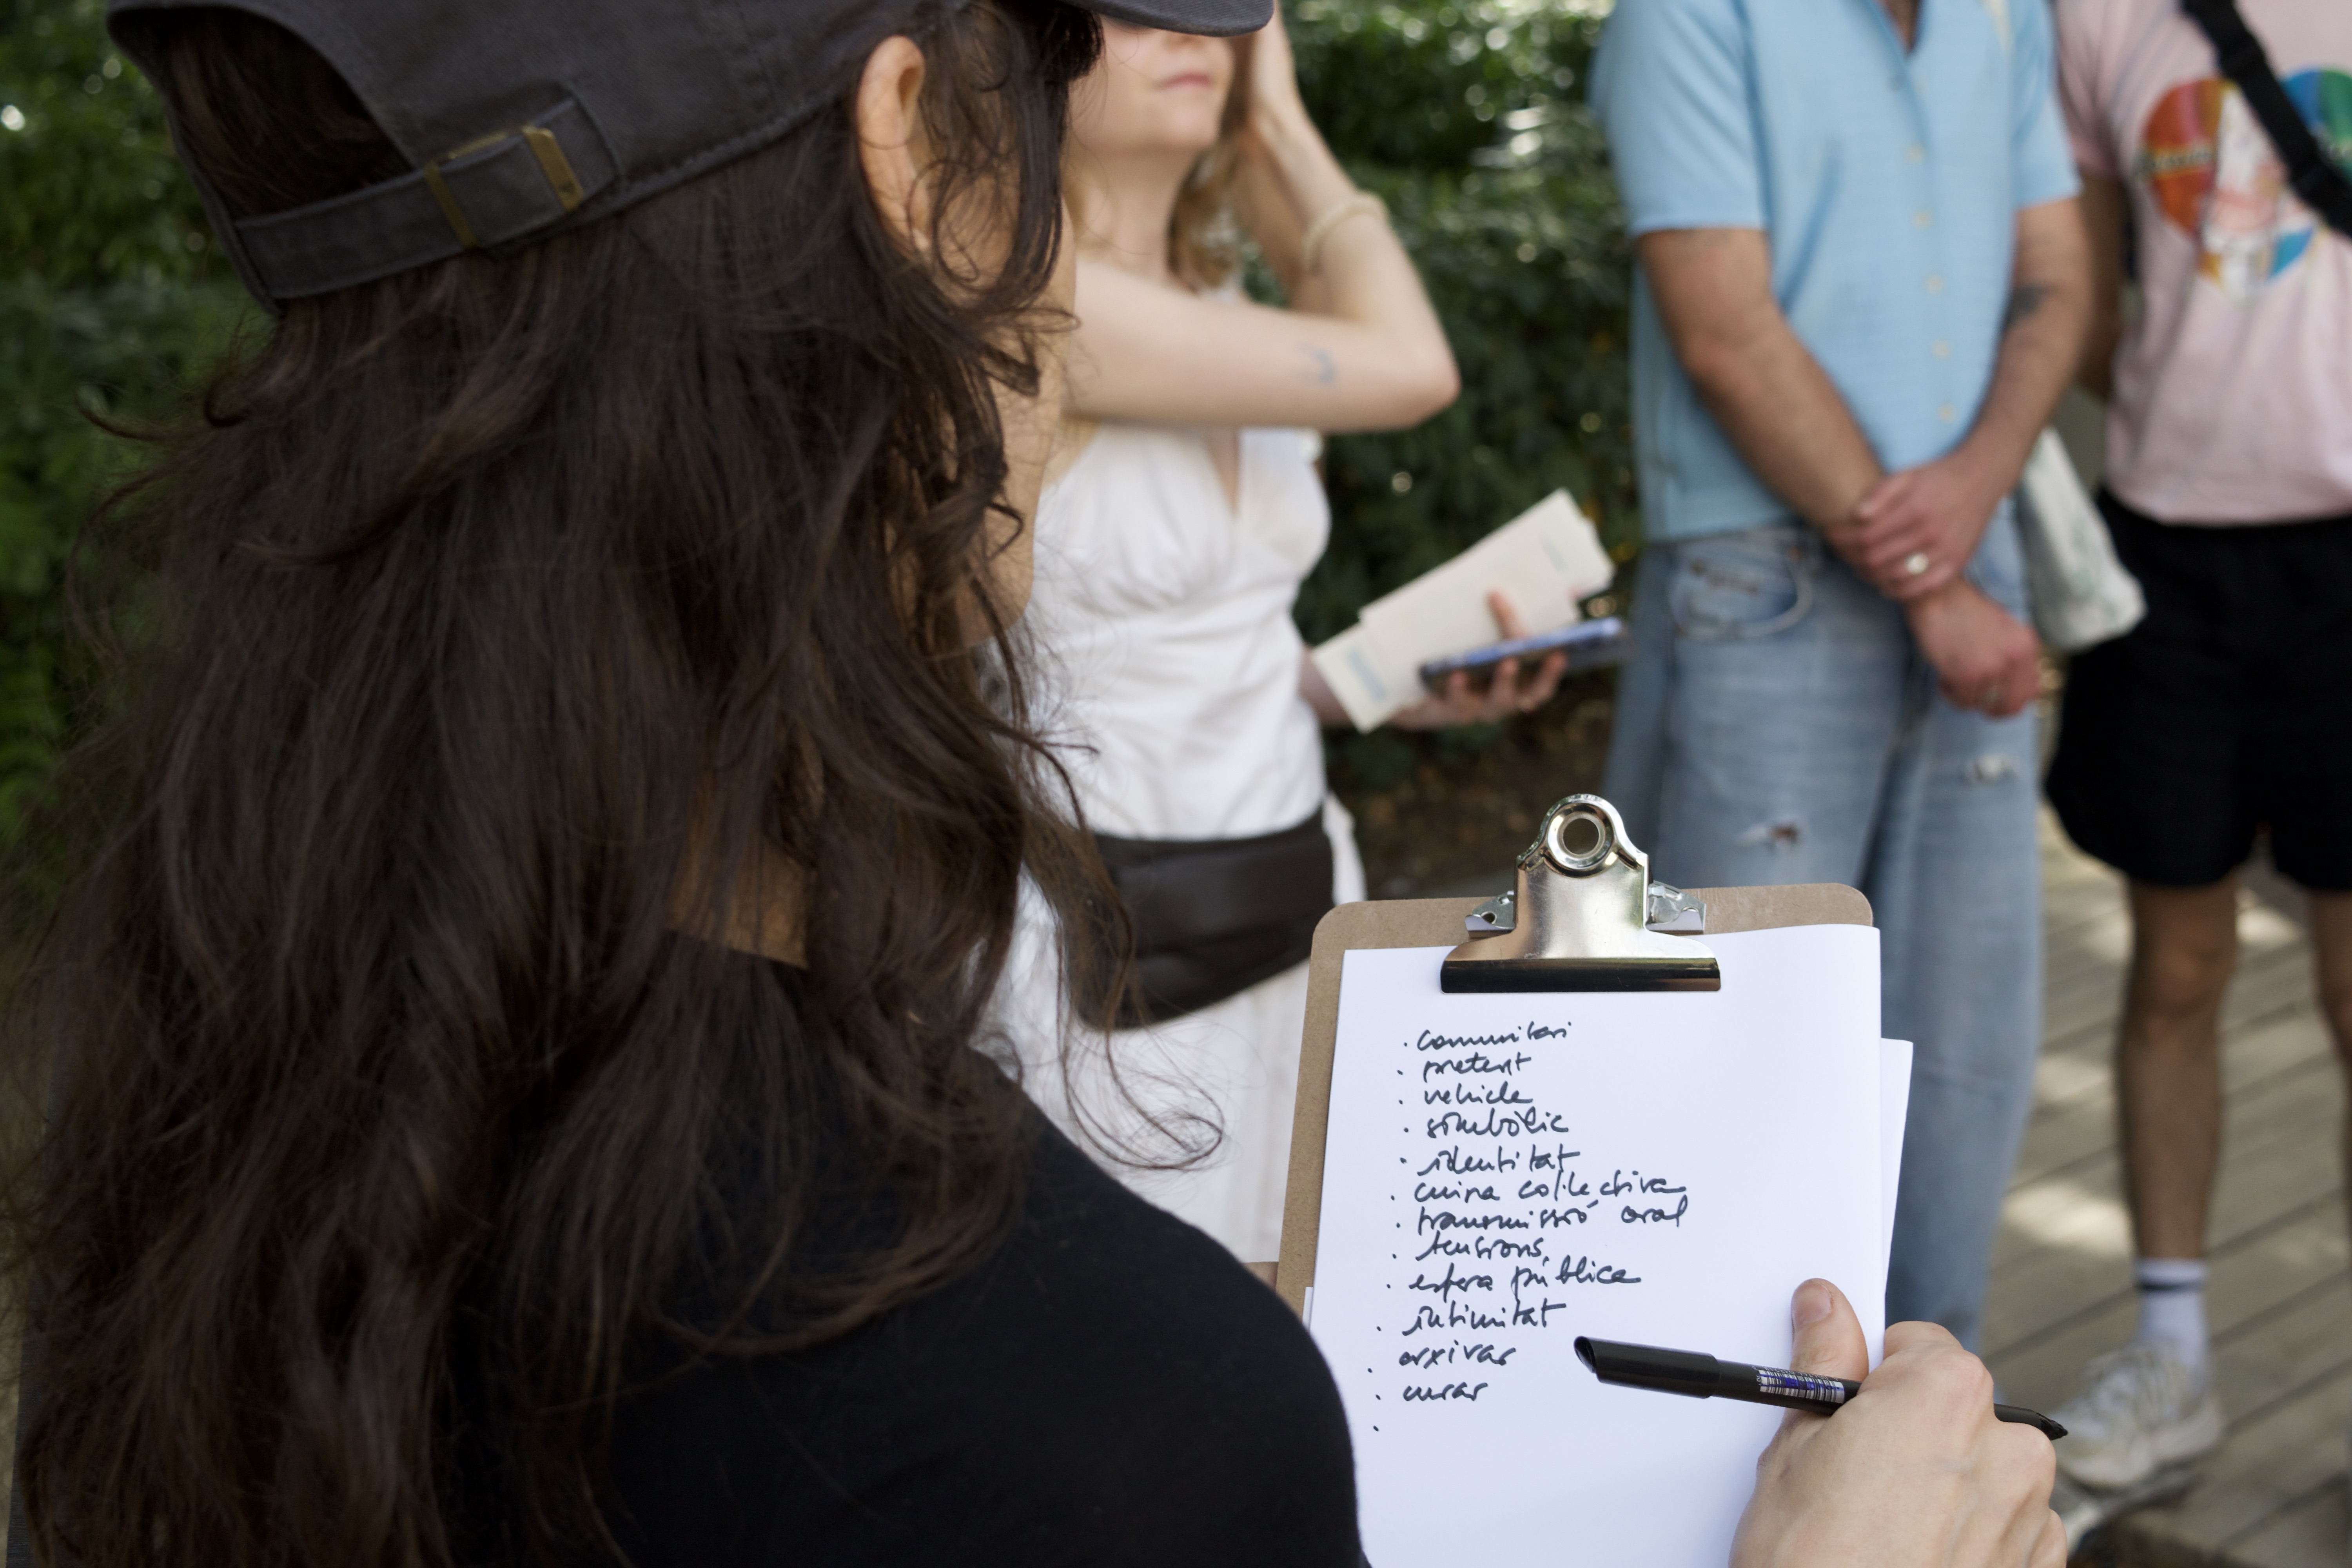 · comunitari
· pretext
· vehicle
· simbòlic
· identitat
· cuina col·lectiva
· transmissió oral
· tensions
· esfera pública
· intimitat
· arxivar
· curar
·